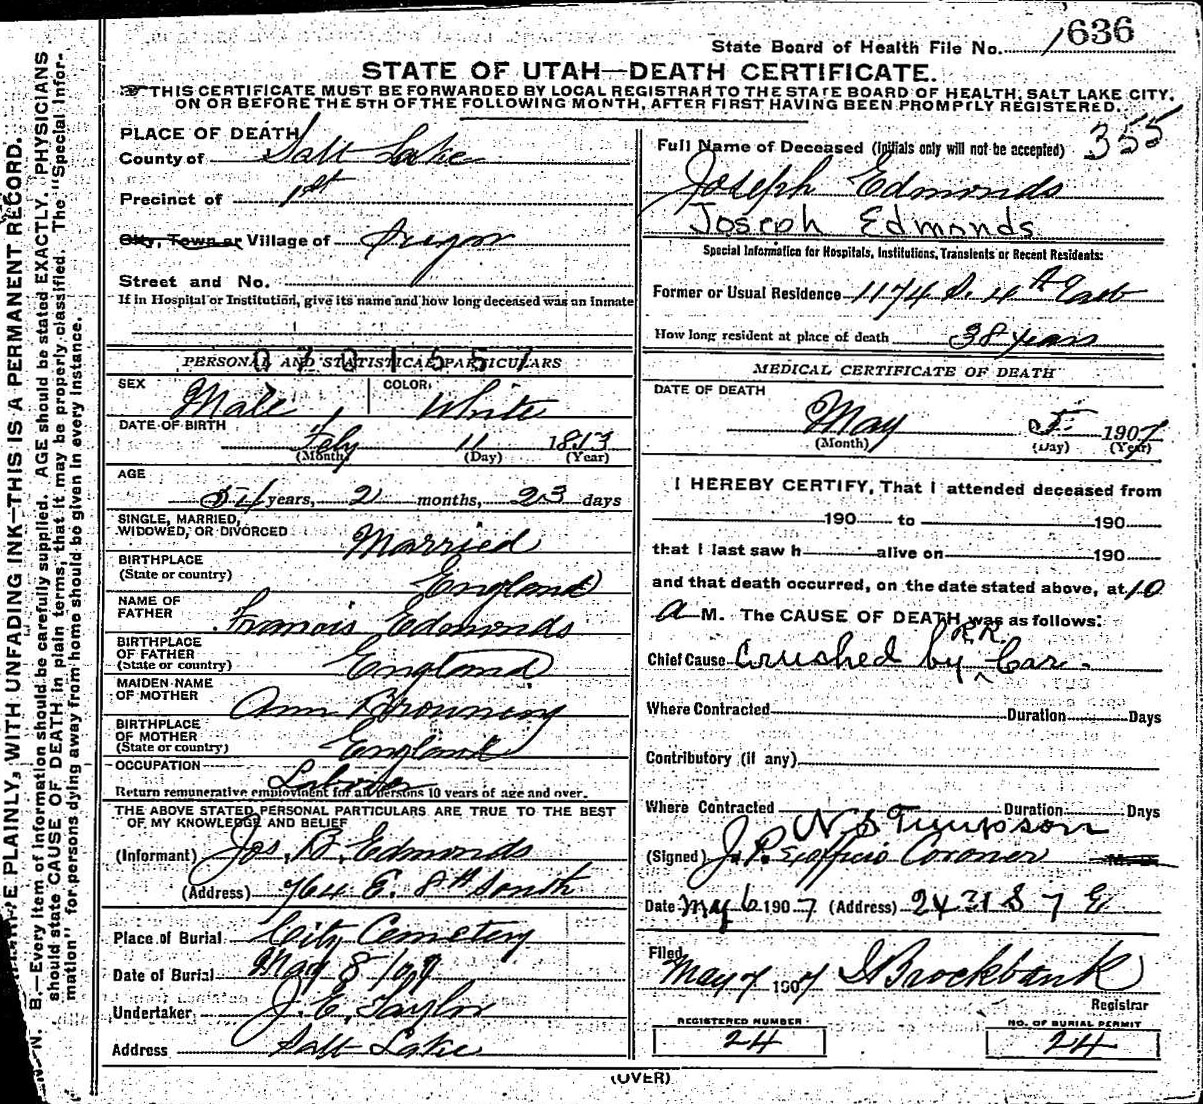 State Board of Health File No. 1636
STATE OF UTAH—DEATH CERTIFICATE.
THIS CERTIFICATE MUST BE FORWARDED BY LOCAL REGISTRAR TO THE STATE BOARD OF HEALTH, SALT LAKE CITY,
ON OR BEFORE THE 5TH OF THE FOLLOWING MONTH, AFTER FIRST HAVING BEEN PROMPTLY REGISTERED.
PLAINLY, WITH UNFADING INK—THIS IS A PERMANENT RECORD.
N. B.—Every item of information should be carefully supplied. AGE should be stated EXACTLY. PHYSICIANS
should state CAUSE OF DEATH in plain terms, that it may be properly classified. The "Special Infor-
mation" for persons dying away from home should be given in every instance.
PLACE OF DEATH
County of Salt Lake
Precinct of 1st
City, Town or Village of
Street and No.
If in Hospital or Institution, give its name and how long deceased was an inmate
PERSONAL AND STATISTICAL PARTICULARS
0701557
SEX Male
COLOR: White
DATE OF BIRTH
Feby 11 1853
(Month) (Day) (Year)
AGE
54 years, 2 months, 23 days
SINGLE, MARRIED,
WIDOWED, OR DIVORCED Married
BIRTHPLACE
(State or country) England
NAME OF
FATHER Francis Edmonds
BIRTHPLACE
OF FATHER
(State or country) England
MAIDEN NAME
OF MOTHER Ann Browning
BIRTHPLACE
OF MOTHER
(State or country) England
OCCUPATION Laborer
Return remunerative employment for all persons 10 years of age and over.
THE ABOVE STATED PERSONAL PARTICULARS ARE TRUE TO THE BEST
OF MY KNOWLEDGE AND BELIEF
(Informant) Jos. B. Edmonds
(Address) 764 E. 8th South
Place of Burial City Cemetery
Date of Burial May 8/07
Undertaker J. E. Taylor
Address Salt Lake
Full Name of Deceased (Initials only will not be accepted) 355
Joseph Edmonds
Joseph Edmonds
Special Information for Hospitals, Institutions, Transients or Recent Residents:
Former or Usual Residence 1174 S. 4th East
How long resident at place of death 38 years
MEDICAL CERTIFICATE OF DEATH
DATE OF DEATH
May 5 1907
(Month) (Day) (Year)
I HEREBY CERTIFY, That I attended deceased from
190 to 190
that I last saw h alive on 190
and that death occurred, on the date stated above, at 10
a M. The CAUSE OF DEATH was as follows:
Chief Cause Crushed by R.R. Car.
Where Contracted Duration Days
Contributory (if any)
Where Contracted Duration Days
(Signed) J.P. Exofficio Coroner M. D.
Date May 6 1907 (Address) 2431 S 7 E
Filed
May 7 1907 Brockbank
Registrar
REGISTERED NUMBER
24
NO. OF BURIAL PERMIT
24
(OVER)